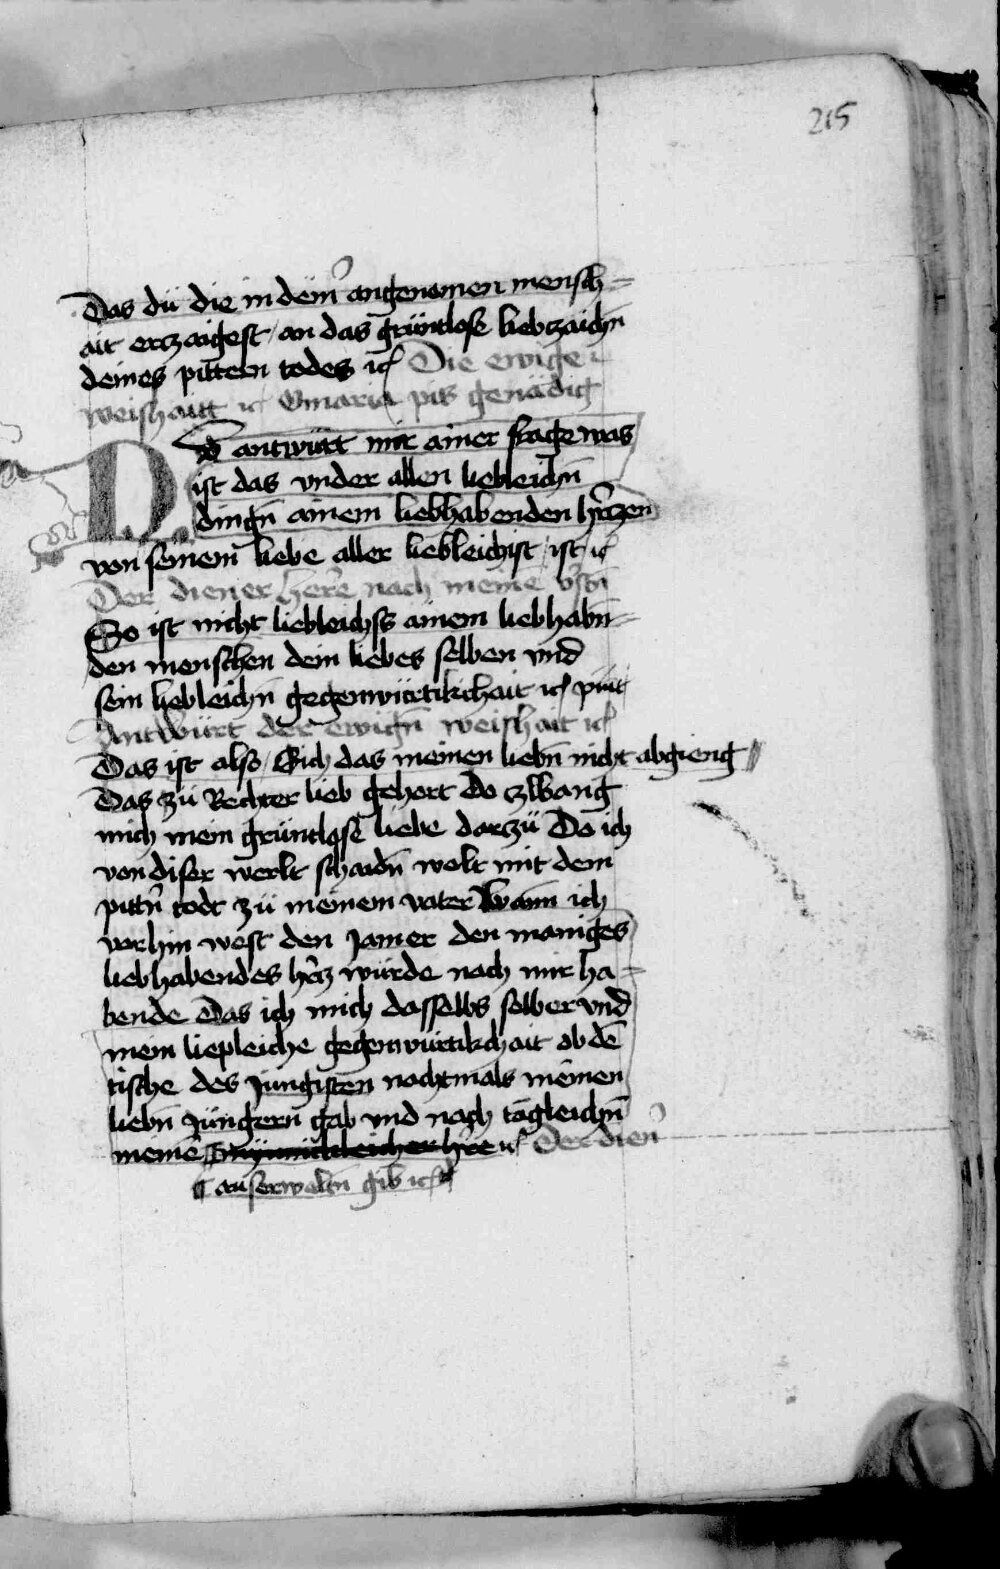 215
Das dü die in dem̄ angenomen mensch=
ait erczaigest / an das grüntlose liebzaichn̄
deines pittern todes ꝛc Die ewige
weishaitt ꝛc O maria pis genädig
Dv antwürt mir ainer frage was
ist das vnder allen liebleichn̄
dingn̄ ainem liebhabenden hr̄czen
von seinem liebe aller liebleichist ist ꝛc
Der diener here nach meine v̄stn̄
So ist nicht liebleichs ainem liebhabn̄=
den menschen dem liebes selben vnd
sein liebleichn̄ gegenwürtikchait ꝛc
Antwürt der ewign̄ weishait ꝛc
Das ist also / Sich das meinen liebn̄ nicht abgieng
Das zü Rechter lieb gehort Do zwang
mich mein grüntlose liebe darzü Do ich
von diser werlt schaidn̄ wolt mit dem
pittn̄ todt zü meinem vater Wann ich
vorhin west den Jamer den maniges
liebhabendes hr̄cz würde nach mir ha=
bende Das ich mich dasselbs selber vnd
mein liepleiche gegenwürtikchait ob dē
tische des Jüngisten nachtmals meinen
liebn̄ Jüngern gab vnd nach tägleichn̄
meinē ꝛc Der dien̄
auserweltn̄ gib ꝛc